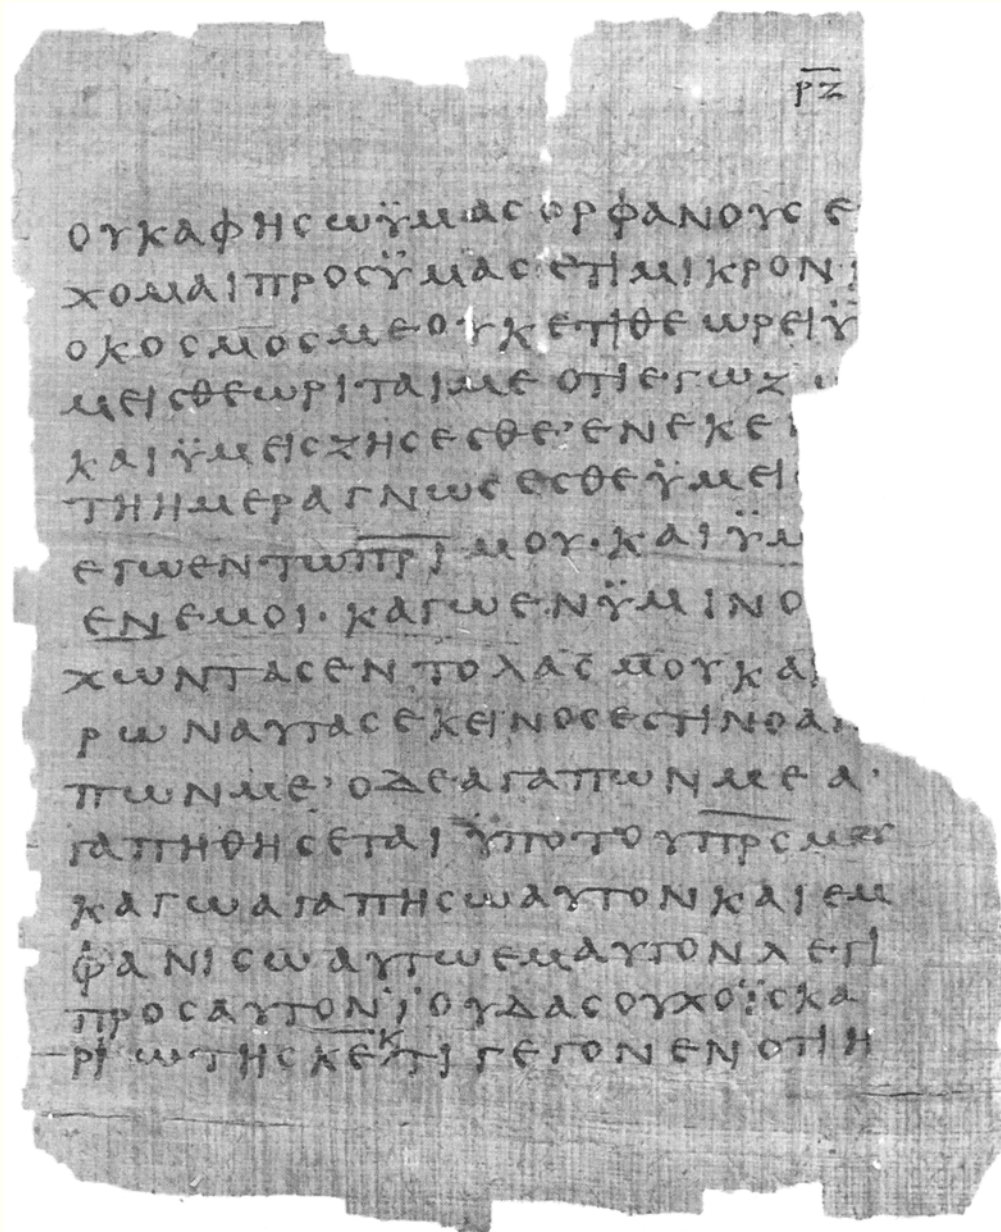 ρζ
ουκαφησωϋμαςορφανουςε
χομαιπροςϋμαςετιμικρον
οκοσμοσμεουκετιθεωρειϋ
μειςθεωριταιμεοτιεγωζ
καιϋμειςζησεσθε·ενεκει
τηημεραγνωσεσθεϋμει
εγωεντωπρ̅ι̅μου·καιϋμ
ενεμοι·καγωενϋμινο
χωντασεντολαςμουκαι
ρωναυταςεκεινοσεστινοα
πωνμε·οδεαγαπωνμεα·
γαπηθησεταιϋποτουπ̅ρ̅ς̅μου
καγωαγαπησωαυτονκαιεμ
φανισωαυτωεμαυτονλεγι
προσαυτονϊουδαςουχοϊσκα
ριωτηςκ̅ε̅κτιγεγονενοτιη